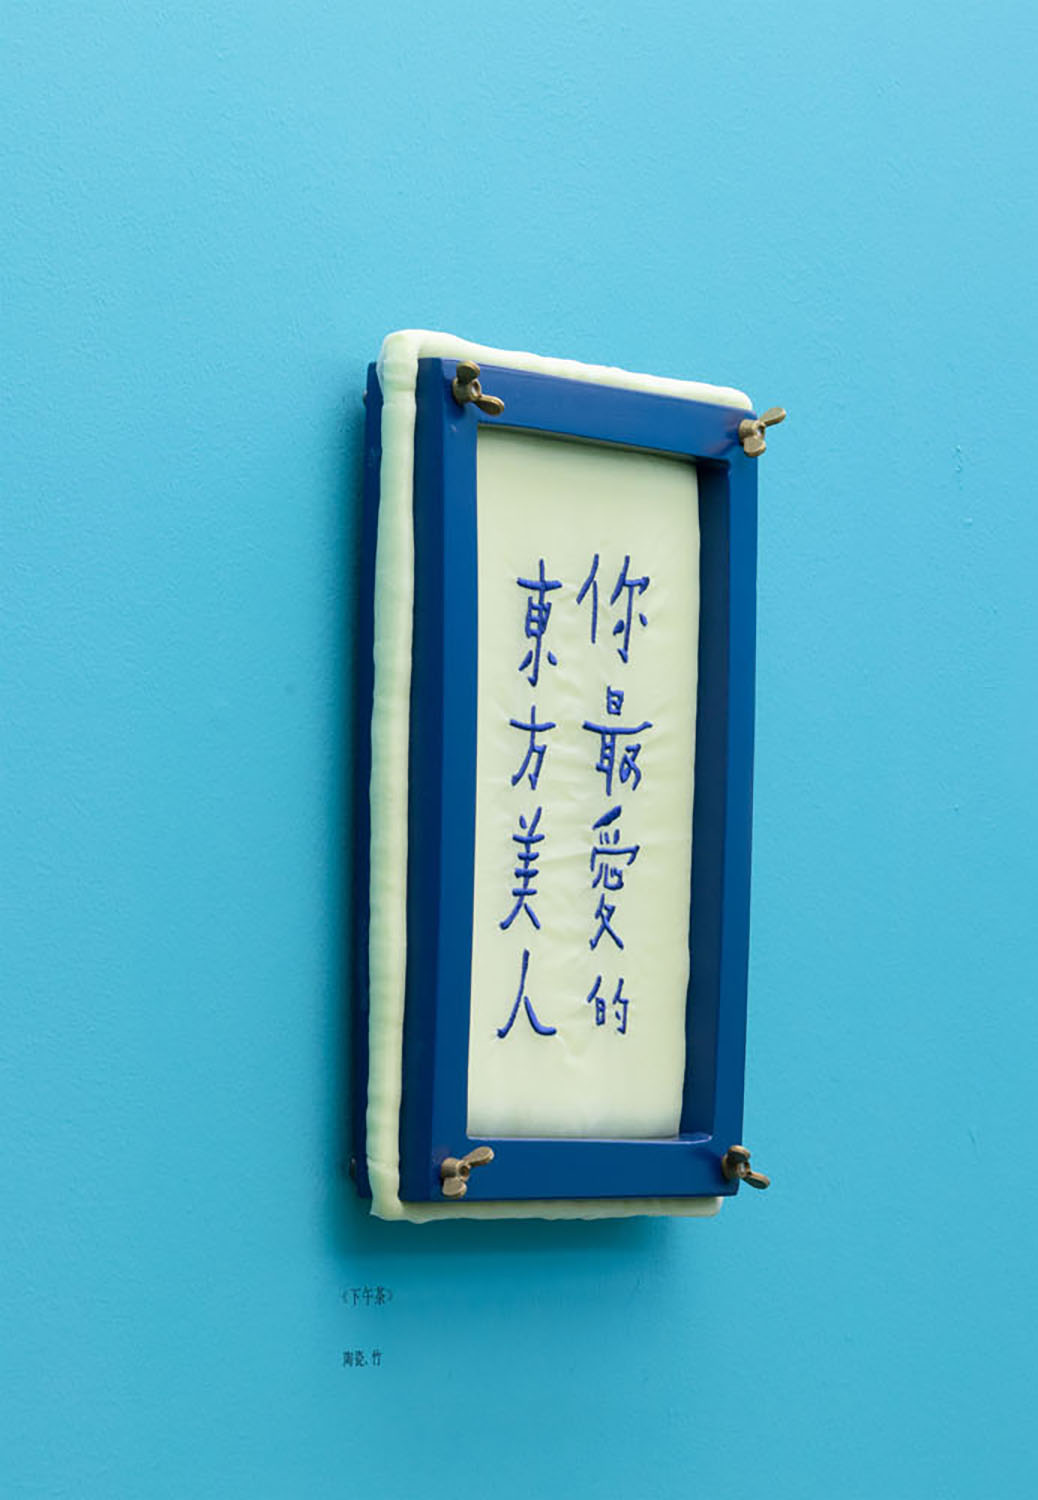 你最愛的
東方美人
《下午茶》
陶瓷、竹